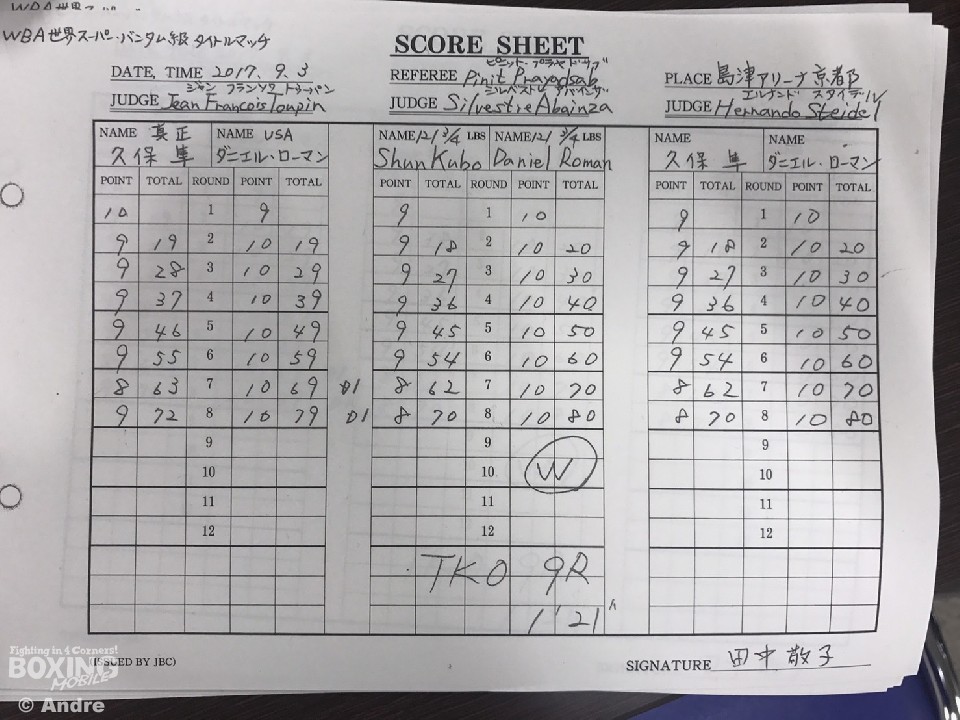 WBA世界スーパー・バンタム級 タイトルマッチ
SCORE SHEET
DATE, TIME 2017. 9. 3
ピニット・プラヤドサブ
REFEREE Pinit Prayadsab
PLACE 島津アリーナ京都
ジャン フランソワ トゥーパン
JUDGE Jean Francois Toupin
シルベストレ アバインザ
JUDGE Silvestre Abainza
エルナンド スタイデル
JUDGE Hernando Steidel
NAME 真正 NAME USA NAME 121 3/4 LBS NAME 121 3/4 LBS NAME NAME
久保 隼 ダニエル・ローマン Shun Kubo Daniel Roman 久保 隼 ダニエル・ローマン
POINT TOTAL ROUND POINT TOTAL POINT TOTAL ROUND POINT TOTAL POINT TOTAL ROUND POINT TOTAL
10 1 9 9 1 10 9 1 10
9 19 2 10 19 9 18 2 10 20 9 18 2 10 20
9 28 3 10 29 9 27 3 10 30 9 27 3 10 30
9 37 4 10 39 9 36 4 10 40 9 36 4 10 40
9 46 5 10 49 9 45 5 10 50 9 45 5 10 50
9 55 6 10 59 9 54 6 10 60 9 54 6 10 60
8 63 7 10 69 D1 8 62 7 10 70 8 62 7 10 70
9 72 8 10 79 D1 8 70 8 10 80 8 70 8 10 80
9 9 9
10 10 W 10
11 11 11
12 12 12
TKO 9R
1'21"
(ISSUED BY JBC)
SIGNATURE 田中 敬子
Fighting in 4 Corners!
BOXING
MOBILE
© Andre